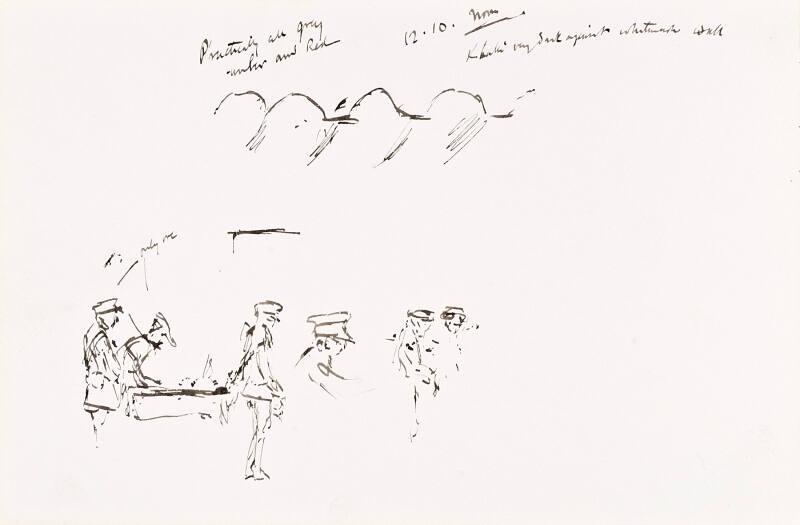 Practically all grey
umber and Red
12.10. Noon
Khaki very dark against whitewash wall
only one